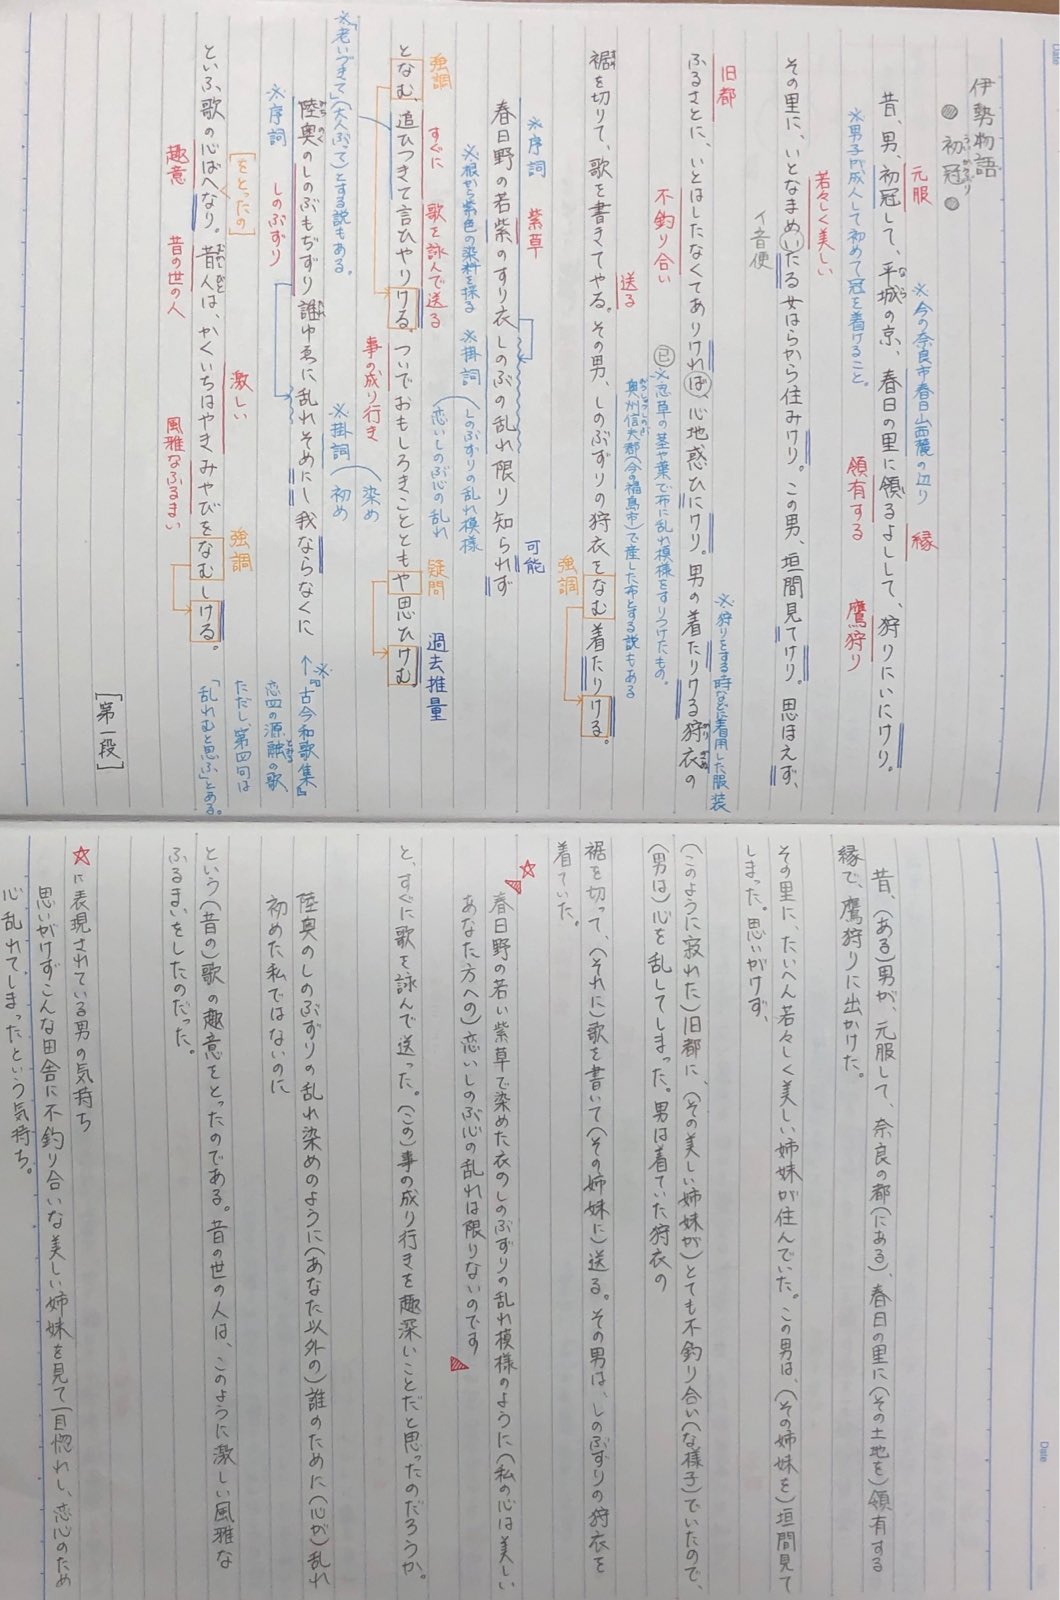 伊勢物語
初冠
うひかうぶり
元服
※今の奈良市春日山西麓の辺り
縁
昔、男、初冠して、平城の京、春日の里に領るよしして、狩りにいにけり。
なら
※男子が成人して初めて冠を着けること。
領有する
鷹狩り
若々しく美しい
その里に、いとなまめいたる女はらから住みけり。この男、垣間見てけり。思ほえず、
イ音便
旧都
※狩りをする時などに着用した服装
ふるさとに、いとはしたなくてありければ、心地惑ひにけり。男の着たりける狩衣の
かりぎぬ
不釣り合い
已
※忍草の茎や葉で布に乱れ模様をすりつけたもの。
奥州信夫郡(今の福島市)で産した布とする説もある
送る
裾を切りて、歌を書きてやる。その男、しのぶずりの狩衣をなむ着たりける。
強調
※序詞
紫草
可能
春日野の若紫のすり衣しのぶの乱れ限り知られず
※根から紫色の染料を採る
※掛詞
しのぶずりの乱れ模様
恋いしのぶ心の乱れ
強調
すぐに
歌を詠んで送る
疑問
過去推量
となむ、追ひつきて言ひやりける。ついでおもしろきことともや思ひけむ。
事の成り行き
※「老いづきて」(大人ぶって)とする説もある。
※掛詞
染め
初め
陸奥のしのぶもぢずり誰ゆゑに乱れそめにし我ならなくに
みちのく
※序詞
しのぶずり
↑※『古今和歌集』
恋四の源融の歌
とほる
ただし、第四句は
「乱れむと思ふ」とある。
[をとったの]
激しい
強調
といふ歌の心ばへなり。昔人は、かくいちはやきみやびをなむしける。
趣意
昔の世の人
風雅なふるまい
[第一段]
昔、(ある)男が、元服して、奈良の都(にある)、春日の里に(その土地を)領有する
縁で、鷹狩りに出かけた。
その里に、たいへん若々しく美しい姉妹が住んでいた。この男は、(その姉妹を)垣間見て
しまった。思いがけず、
(このように寂れた)旧都に、(その美しい姉妹が)とても不釣り合い(な様子)でいたので、
(男は)心を乱してしまった。男は着ていた狩衣の
裾を切って、(それに)歌を書いて(その姉妹に)送る。その男は、しのぶずりの狩衣を
着ていた。
☆
春日野の若い紫草で染めた衣のしのぶずりの乱れ模様のように(私の心は美しい
あなた方への)恋いしのぶ心の乱れは限りないのです
と、すぐに歌を詠んで送った。(この)事の成り行きを趣深いことだと思ったのだろうか。
陸奥のしのぶずりの乱れ染めのように(あなた以外の)誰のために(心が)乱れ
初めた私ではないのに
という(昔の)歌の趣意をとったのである。昔の世の人は、このように激しい風雅な
ふるまいをしたのだった。
☆に表現されている男の気持ち
思いがけずこんな田舎に不釣り合いな美しい姉妹を見て一目惚れし、恋心のため
心乱れてしまったという気持ち。
Date